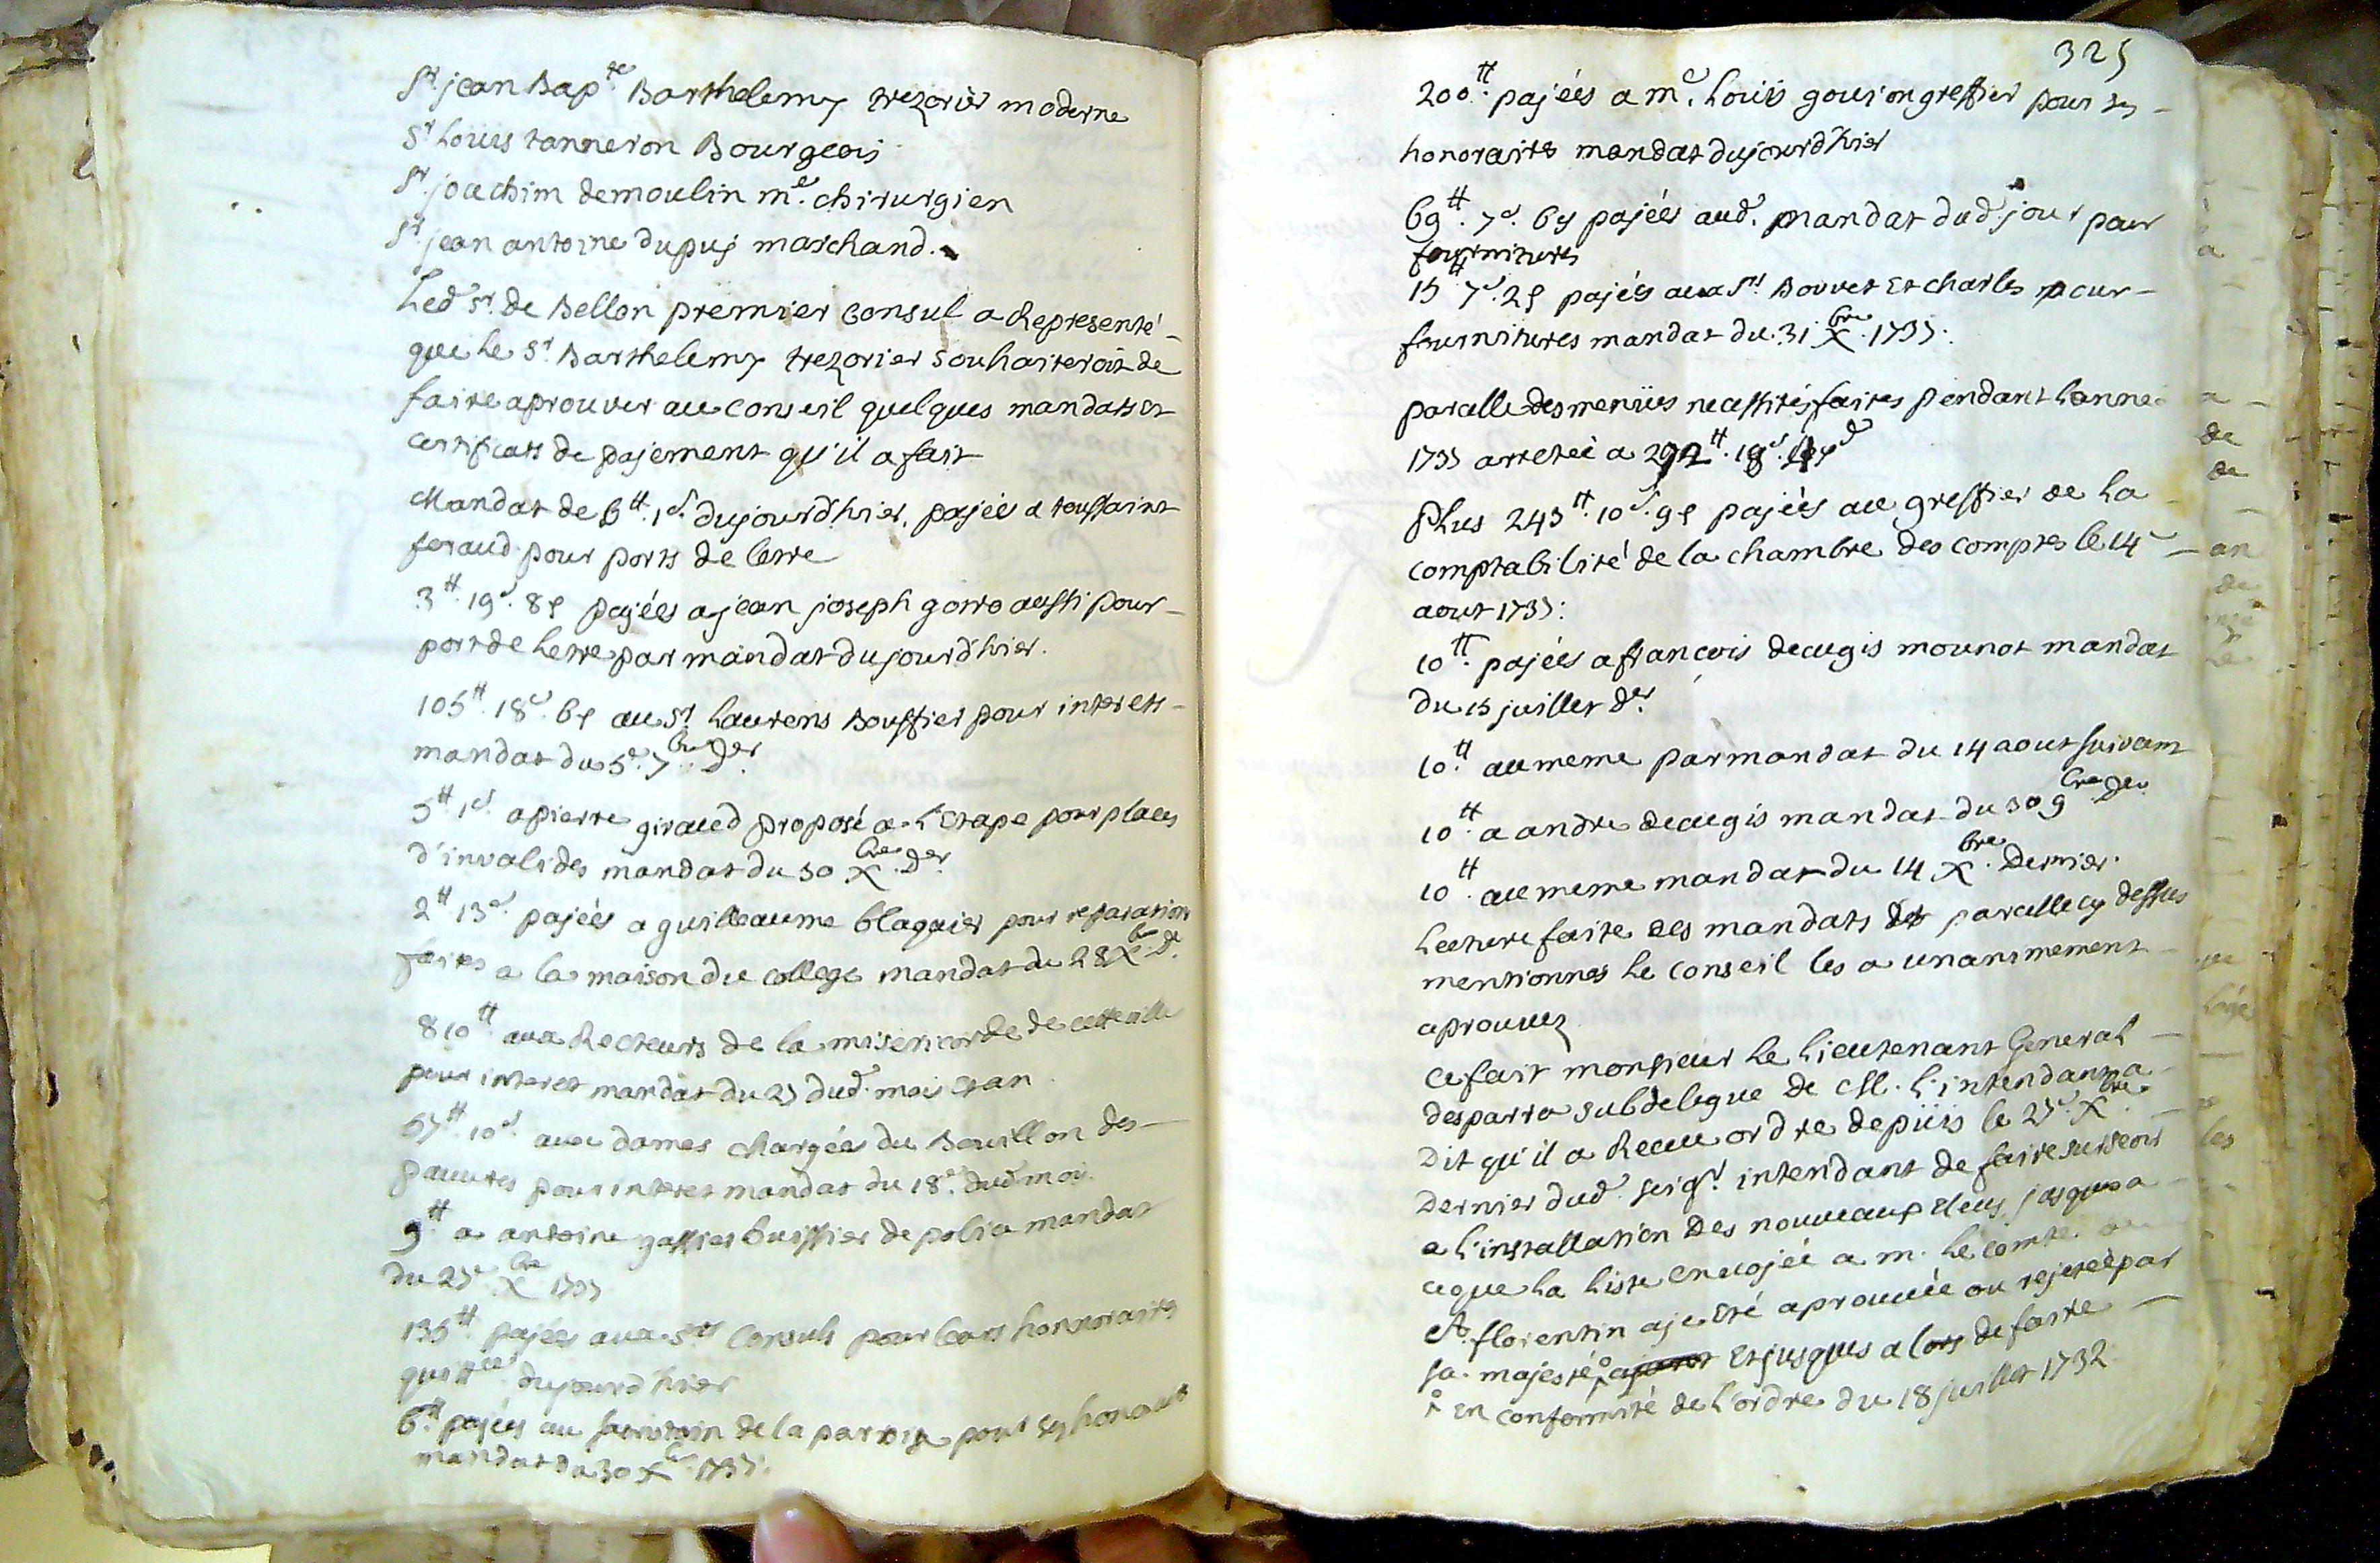 Sr. jean Bapte. Barthelemy trezorier moderne
Sr louis tanneron Bourgeois
Sr. joachim demoulin me. chirurgien
Sr. jean antoine dupuj marchand.
Led. sr. de Bellon premier consul a Representé
que le Sr. Barthelemy trezorier souhaiteroit de
faire aprouver au conseil quelques mandats et
certificats de pajement qu'il a fait
Mandat de 6ᵗᵗ. 1ˢ. dujourd'hier, pajées a toussaint
feraud pour ports de letre
3ᵗᵗ. 19ˢ. 8ᵈ pajées a jean joseph gorro aussi pour
port de letre par mandat dujourd'hier.
105ᵗᵗ. 18ˢ. 6ᵈ au Sr. Laurens Bouffier pour interets
mandat du 5e. 7bre. der.
5ᵗᵗ 1ˢ. a pierre giraud proposé a l'Etape pour places
d'invalides mandat du 30 Xbre. der.
2ᵗᵗ 13ˢ. pajées a guilleaume blaquier pour reparations
faites a la maison du college mandat du 28 Xbre. dr.
810ᵗᵗ. aux Recteurs de la misericorde de cette ville
pour interet mandat du 23 dud. mois et an
67ᵗᵗ. 10ˢ. aux dames chargées du Bouillon des
pauvres pour interet mandat du 18e. dud. mois
9ᵗᵗ. a antoine gassier huissier de police mandat
du 23e Xbre 1737
136ᵗᵗ. pajées aux Srs Consuls pour leurs honnoraires
quittce dujourd'hier
6ᵗᵗ. pajées au sacristain de la paroisse pour ses honoraires
mandat du 30 Xbre. 1737.
325
200ᵗᵗ. pajées a me. Louis goujon greffier pour ses
honoraires mandat dujourd'hier
69ᵗᵗ. 7ˢ. 6ᵈ pajées aud. mandat dud. jour pour
fournitures
15ᵗᵗ 7ˢ. 2ᵈ pajées aux Srs Bouvet Et charles pour
fournitures mandat du 31 Xbre. 1737.
parcelle des menües necessités faites pendant l'anneé
1737 arretée a 292ᵗᵗ. 18ˢ.
Plus 243ᵗᵗ. 10ˢ. 9ᵈ pajées au greffier de la
comptabilité de la chambre des comptes le 14e
aout 1737:
10ᵗᵗ. pajées a francois decugis mounot mandat
du 15 juillet der.
10ᵗᵗ. au meme par mandat du 14 aout suivant
10ᵗᵗ. a andre decugis mandat du 30 9bre der
10ᵗᵗ. au meme mandat du 14 Xbre. Dernier.
Lecture faite des mandats et parcelle cy dessus
mentionnés le conseil les a unanimement
aprouvez
Ce fait monsieur le Lieutenant General
desparra subdelegue de M. l'intendant a
Dit qu'il a Receu ordre depuis le 23e. Xbre.
Dernier dud. seigr. intendant de faire surseoir
a l'installation des nouveaux eleus jusques a
ce que la liste envojée a m. le comte de
St. florentin aje eté aprouvée ou rejetée par
sa majesté Et jusques a lors de faire
en conformité de l'ordre du 18 juillet 1732